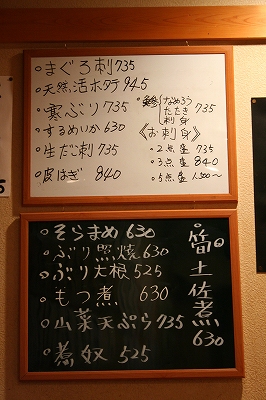 まぐろ刺 735
天然活ホタテ 945
寒ぶり 735
するめいか 630
生だこ刺 735
皮はぎ 840
鯵 なめろう たたき 刺身 735
《お刺身》
2点盛 735
3点盛 840
5点盛 1,300〜
そらまめ 630
ぶり照焼 630
ぶり大根 525
もつ煮 630
山菜天ぷら 735
奴 525
筍の土佐煮 630